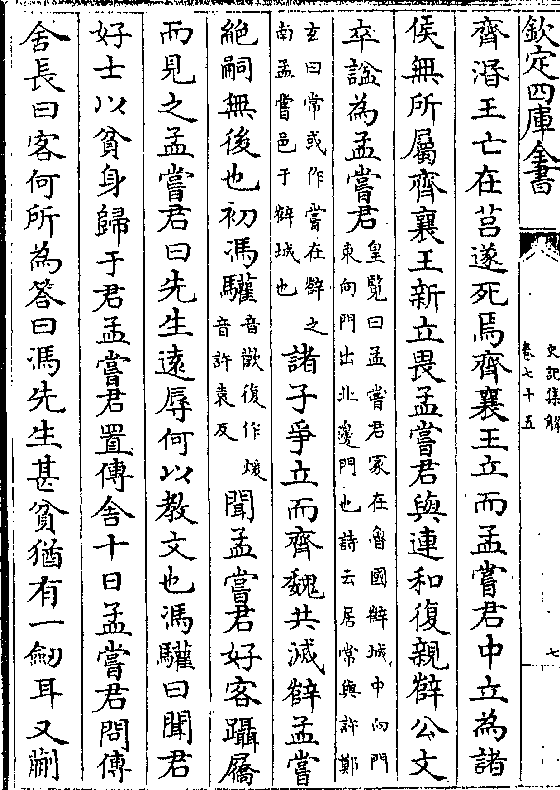 欽定四庫全書
史記集解
卷七十五
七
齊湣王亡在莒遂死焉齊襄王立而孟嘗君中立為諸
侯無所屬齊襄王新立畏孟嘗君與連和復親薛公文
卒諡為孟嘗君皇覽曰孟嘗君冢在魯國薛城中向門東向門出北邊門也詩云居常與許鄭
玄曰常或作嘗在薛之南孟嘗邑于薛城也諸子爭立而齊魏共滅薛孟嘗
絶嗣無後也初馮驩音歡復作煖音許袁反聞孟嘗君好客躡屩
而見之孟嘗君曰先生遠辱何以教文也馮驩曰聞君
好士以貧身歸于君孟嘗君置傳舍十日孟嘗君問傳
舍長曰客何所為答曰馮先生甚貧猶有一劒耳又蒯